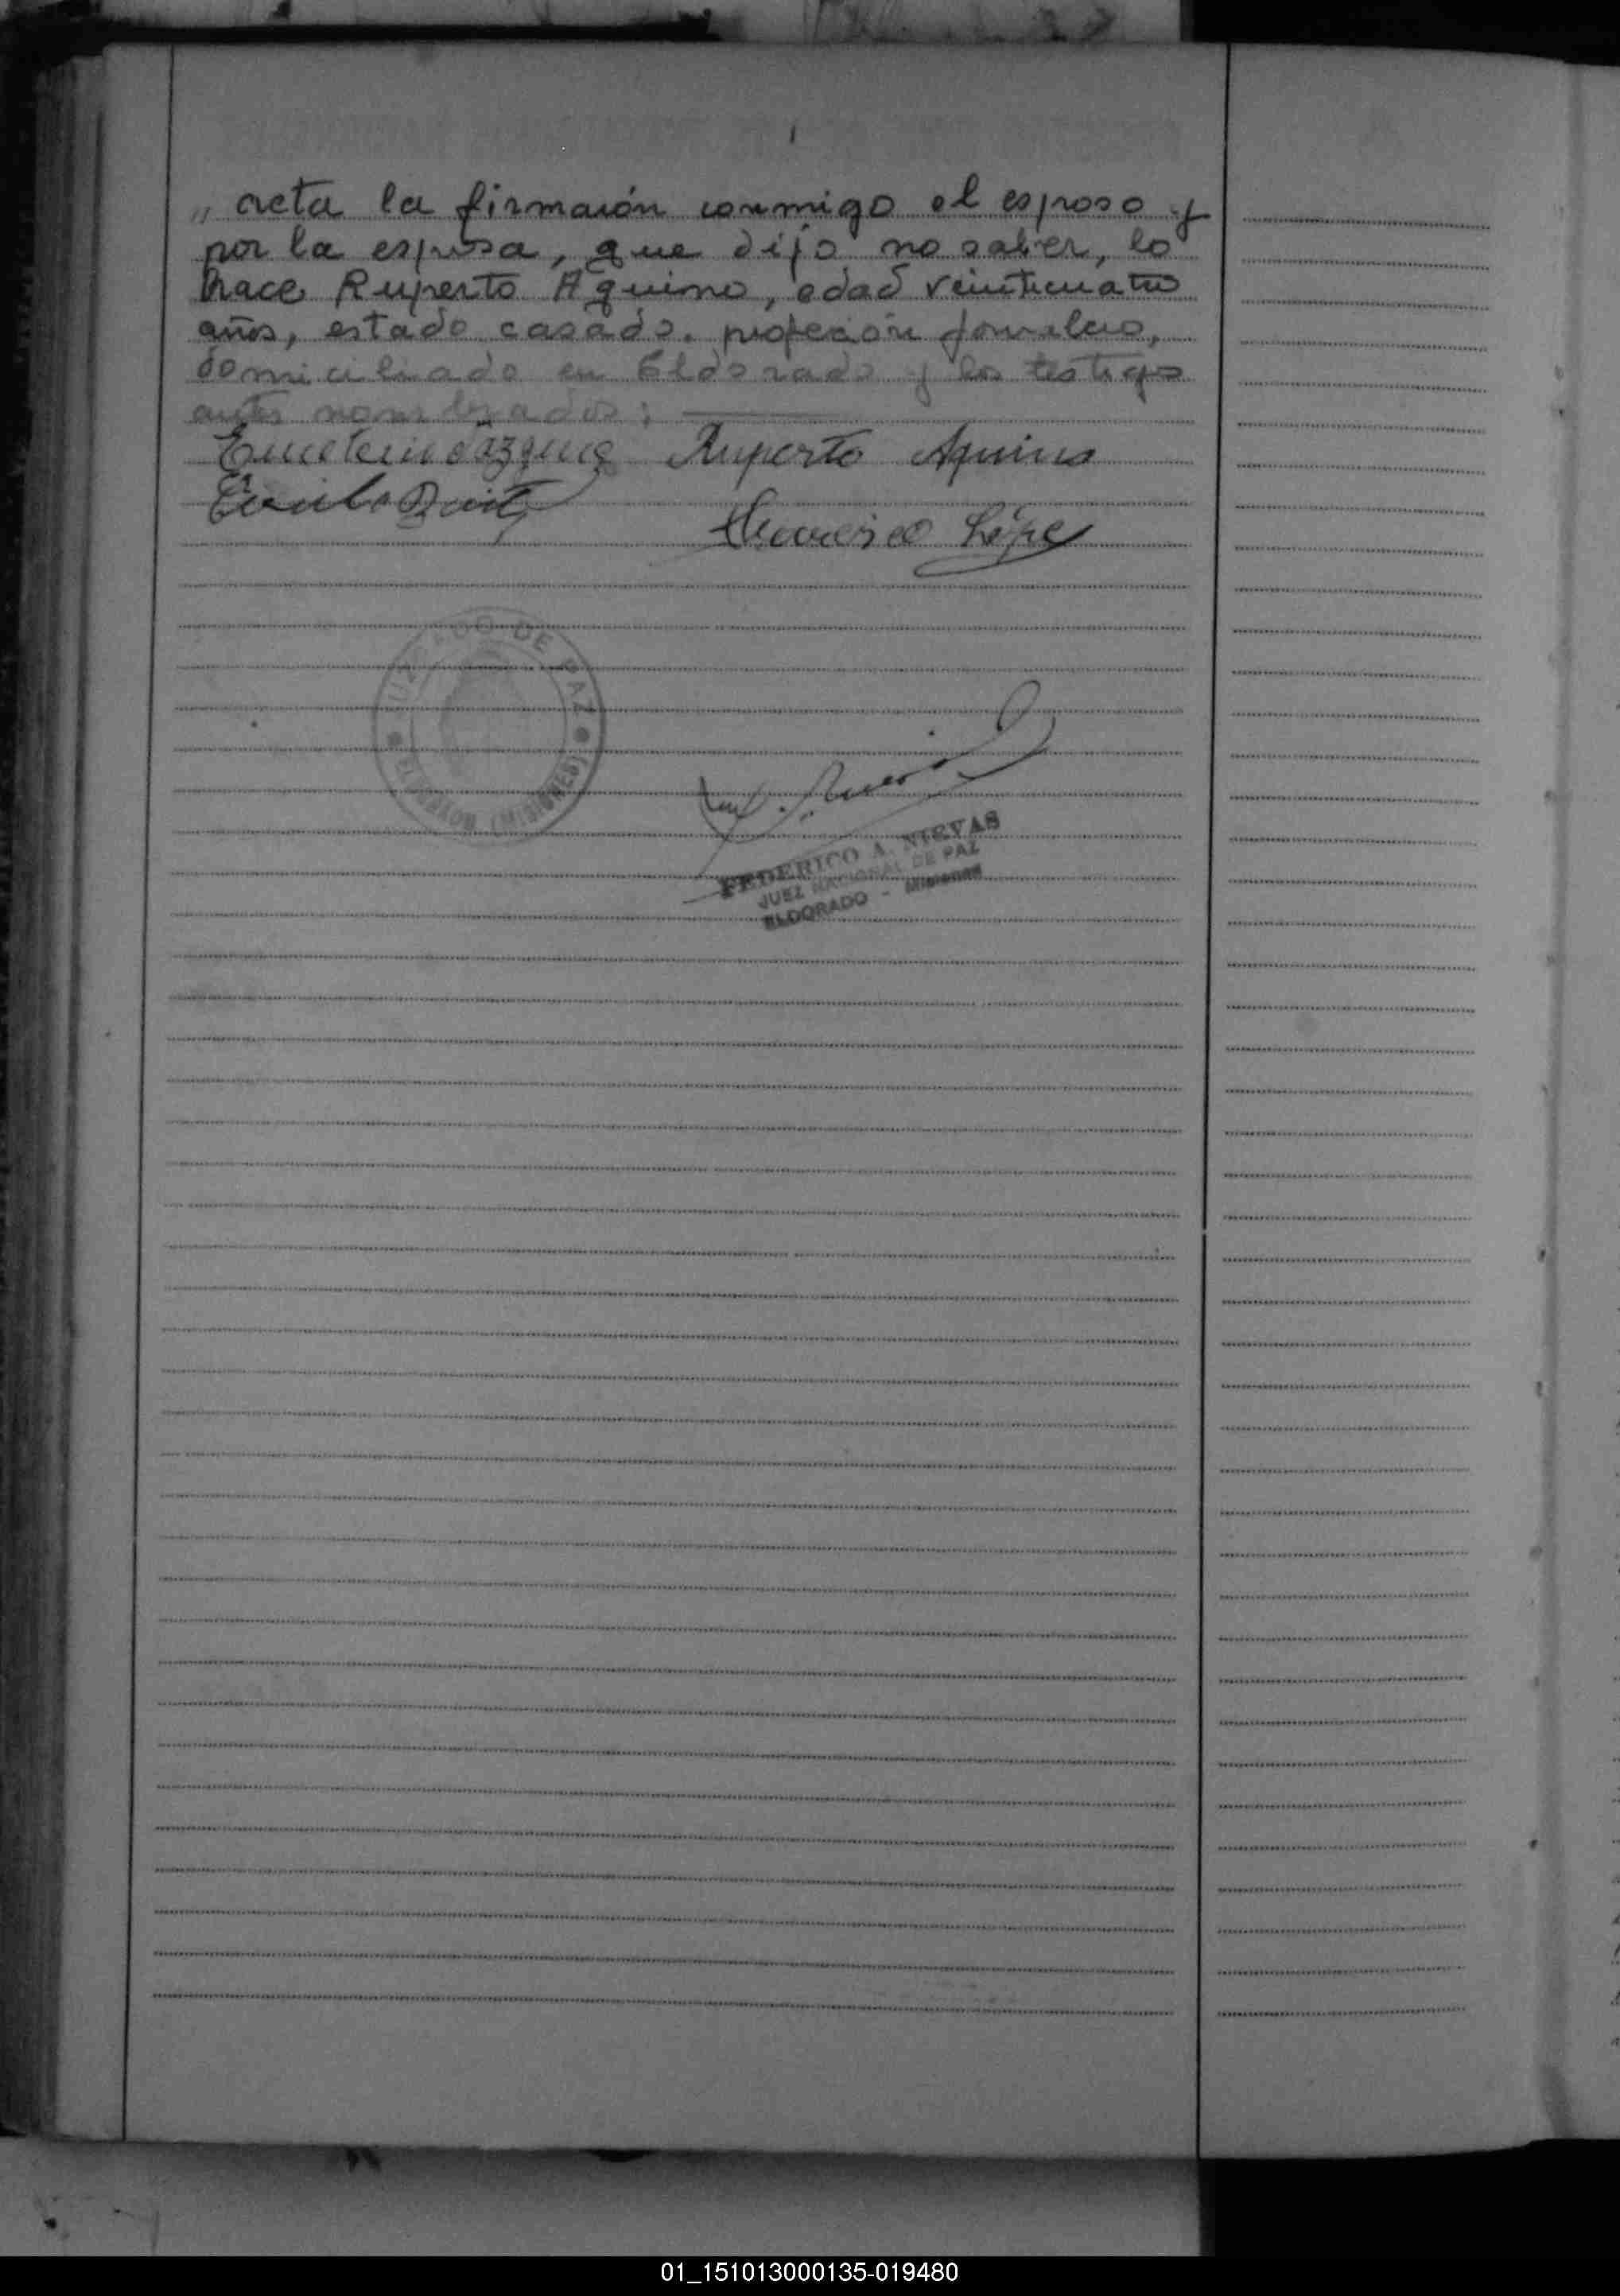 „ acta la firmaron conmigo el esposo y
por la esposa, que dijo no saber, lo
hace Ruperto Aquino, edad veinticuatro
años, estado casado, profesión jornalero,
domiciliado en Eldorado y los testigos
antes nombrados:
Ruperto Aquino
López
JUZGADO DE PAZ
ELDORADO (MISIONES)
FEDERICO A. NIEVAS
JUEZ NACIONAL DE PAZ
ELDORADO - Misiones
01_151013000135-019480